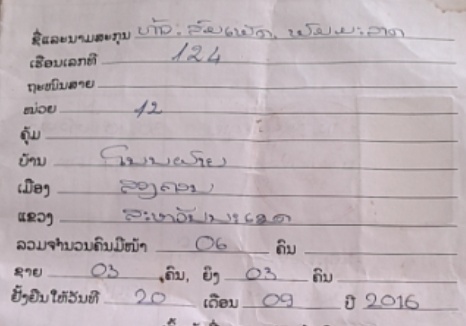 ຊື່ແລະນາມສະກຸນ ທ້າວ. ສົມເພັດ. ພົມມະລາດ
ເຮືອນເລກທີ 124
ຖະໜົນສາຍ
ໜ່ວຍ 12
ຄຸ້ມ
ບ້ານ ໂນນ
ເມືອງ ສອງຄອນ
ແຂວງ ສະຫວັນນະເຂດ
ລວມຈຳນວນຄົນມີໜ້າ 06 ຄົນ
ຊາຍ 03 ຄົນ, ຍິງ 03 ຄົນ
ຢັ້ງຢືນໃຫ້ວັນທີ 20 ເດືອນ 09 ປີ 2016